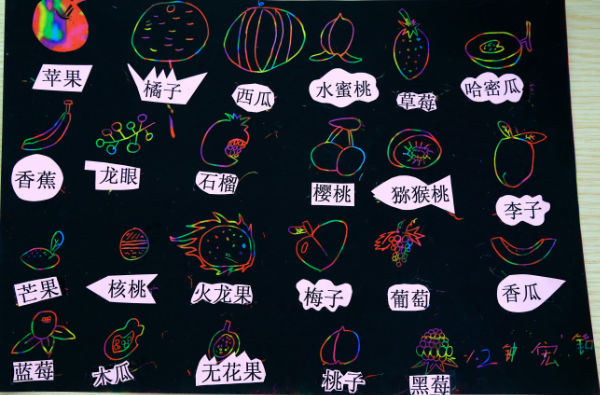 苹果
橘子
西瓜
水蜜桃
草莓
哈密瓜
香蕉
龙眼
石榴
樱桃
猕猴桃
李子
芒果
核桃
火龙果
梅子
葡萄
香瓜
蓝莓
木瓜
无花果
桃子
黑莓